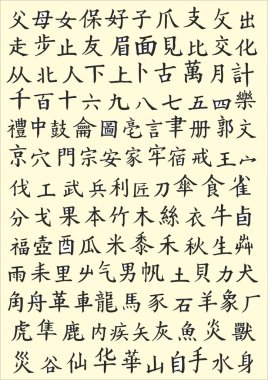 父母女保好子爪支攵出
走步止友眉面見比交化
从北人下上卜古萬月計
千百十六九八七五四樂
禮中鼓龠圖亳言聿册郭文
京穴門宗安家牢宿戒王
伐工武兵利匠刀傘食雀
分戈果本竹木絲衣牛卤
福壺酉瓜米黍禾秋生艸
雨耒里气男帆土貝力犬
角舟革車龍馬豕石羊象厂
虎隼鹿内疾矢灰魚炎獸
災谷仙华華山自手水身